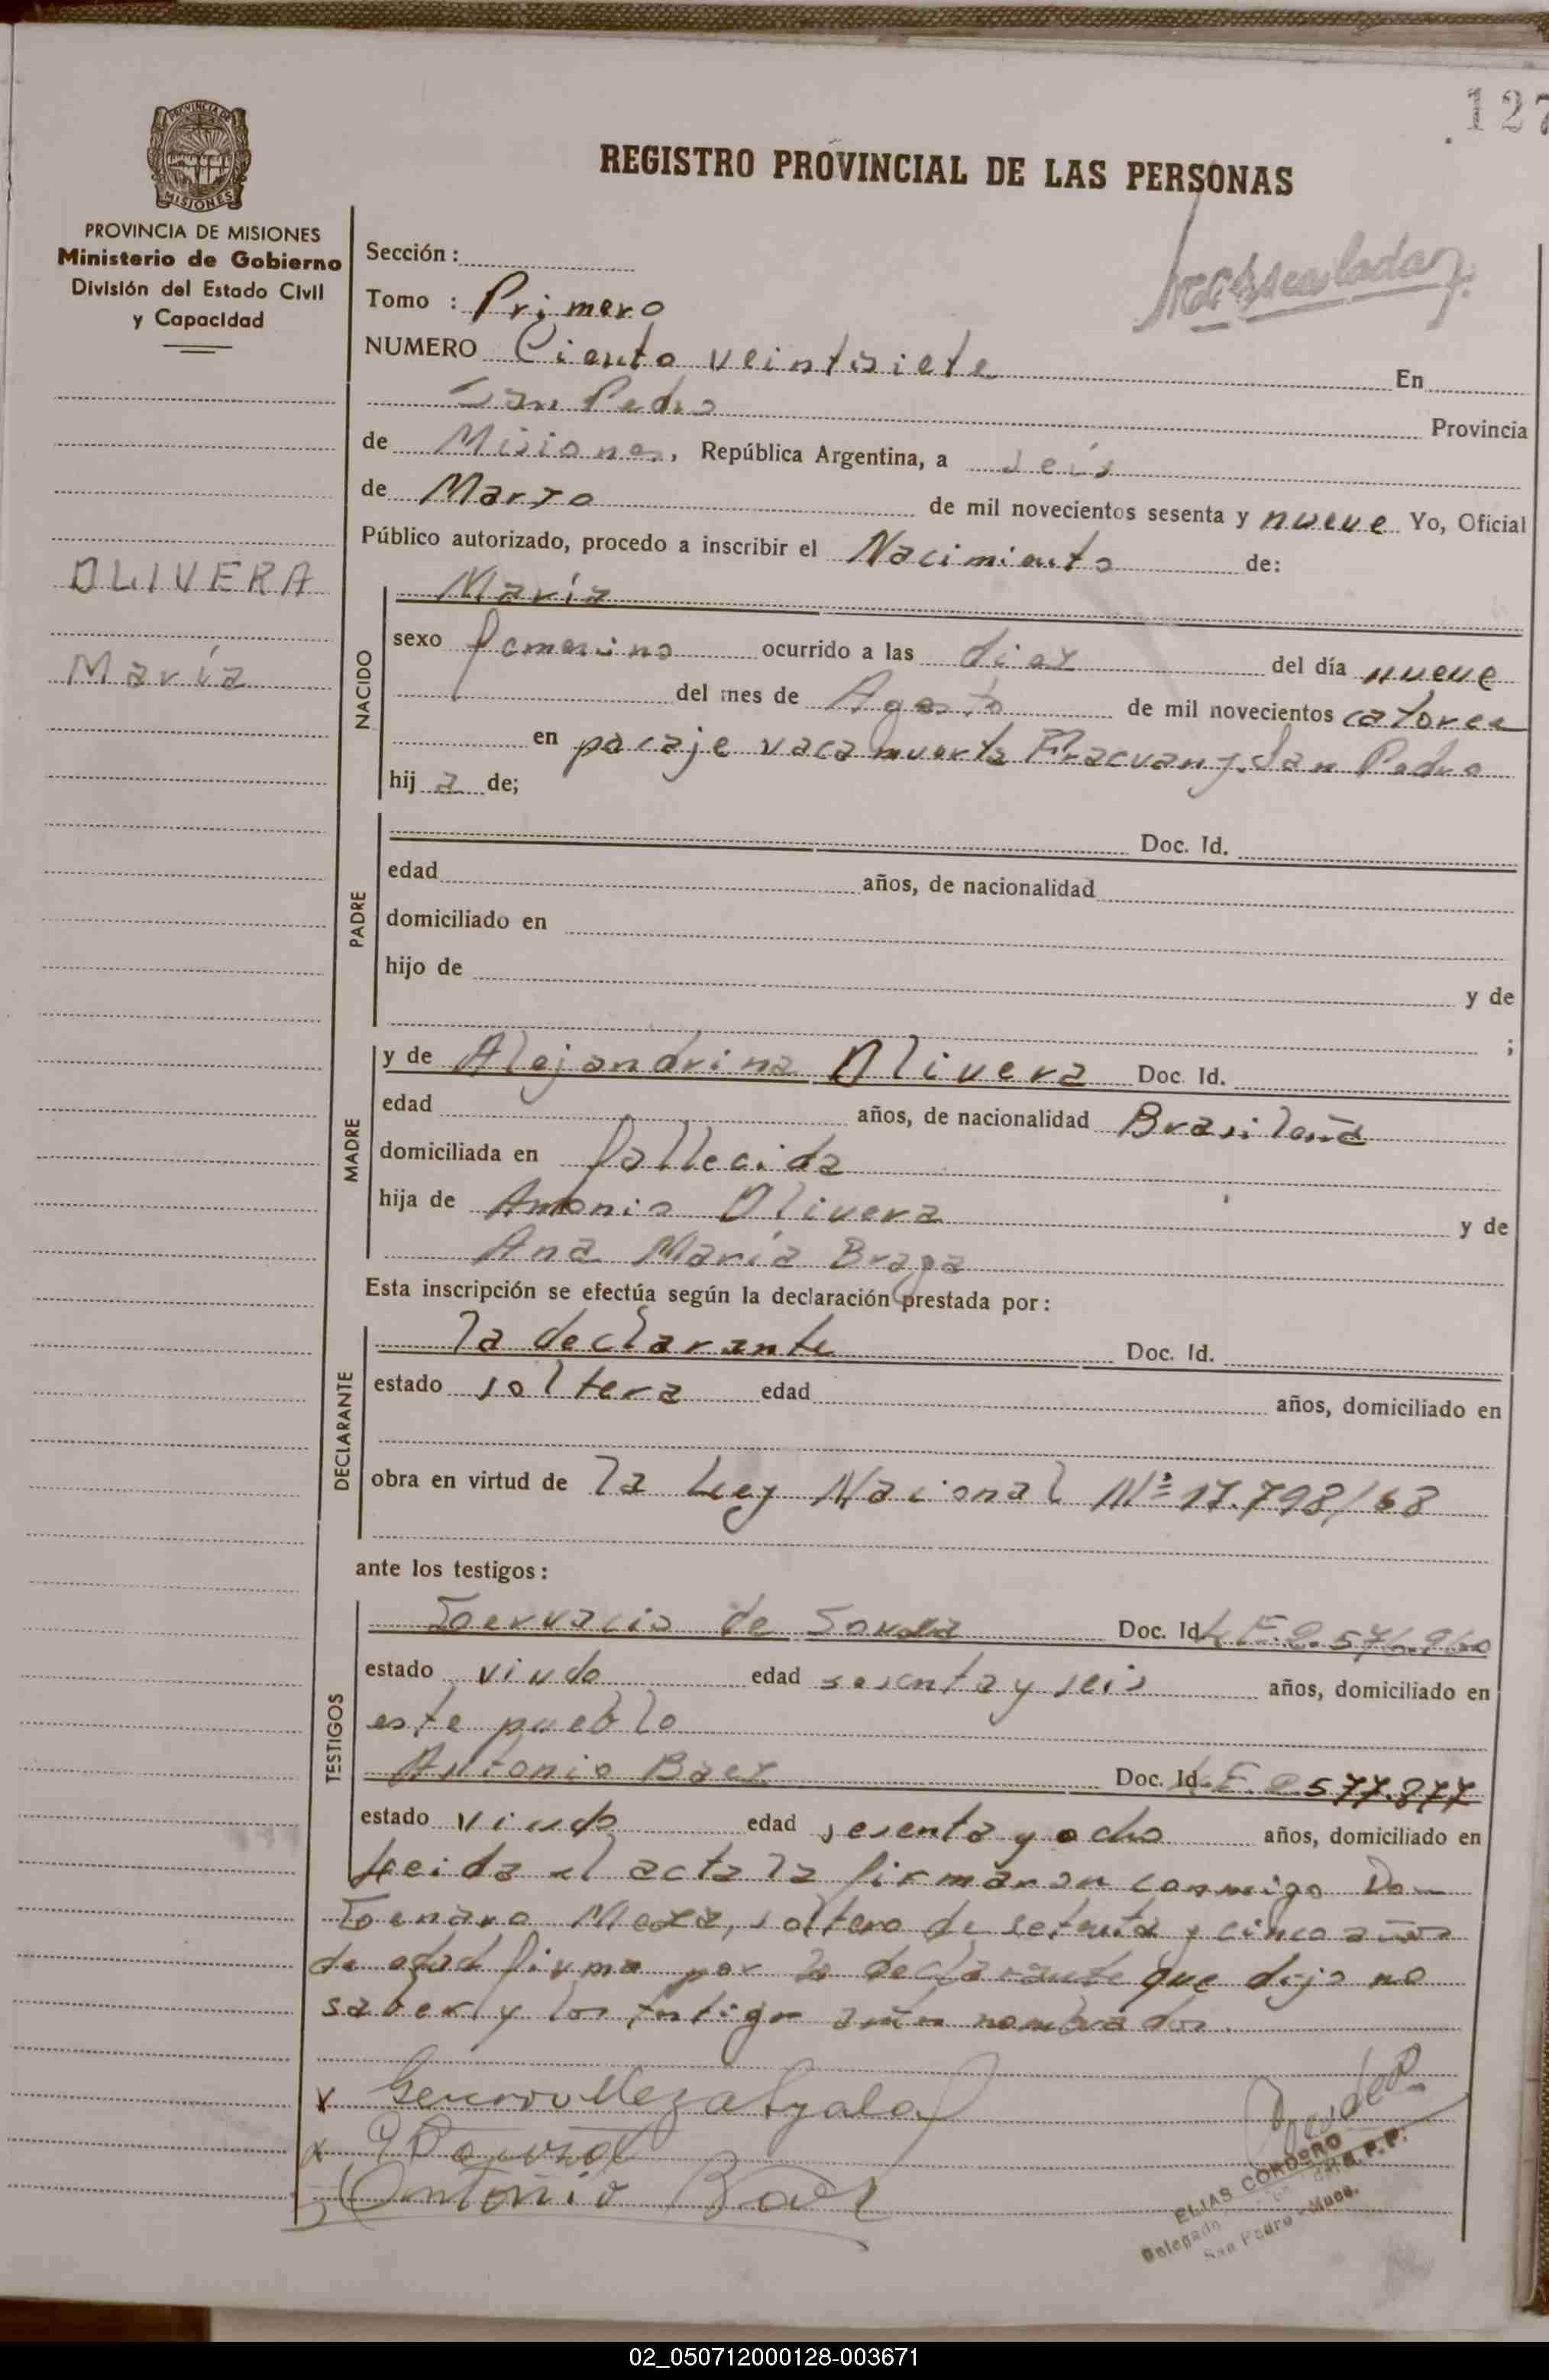 127
REGISTRO PROVINCIAL DE LAS PERSONAS
PROVINCIA DE MISIONES
MISIONES
PROVINCIA DE MISIONES
Ministerio de Gobierno
División del Estado Civil
y Capacidad
OLIVERA
María
Sección :
Tomo : Primero
NUMERO Ciento veintisiete En
San Pedro Provincia
de Misiones, República Argentina, a seis
de Marzo de mil novecientos sesenta y nueve Yo, Oficial
Público autorizado, procedo a inscribir el Nacimiento de:
NACIDO
María
sexo femenino ocurrido a las diez del día nueve
del mes de Agosto de mil novecientos catorce
en paraje vaca muerta Fracran y San Pedro
hij a de;
PADRE
Doc. Id.
edad años, de nacionalidad
domiciliado en
hijo de y de
;
MADRE
y de Alejandrina Olivera Doc. Id.
edad años, de nacionalidad Brasileña
domiciliada en fallecida
hija de Antonio Olivera y de
Ana María Braga
Esta inscripción se efectúa según la declaración prestada por :
DECLARANTE
la declarante Doc. Id.
estado soltera edad años, domiciliado en
obra en virtud de la Ley Nacional Nº 17.798/68
ante los testigos :
TESTIGOS
de Souza Doc. Id. L.E. 2.576.960
estado viudo edad sesenta y seis años, domiciliado en
este pueblo
Antonio Baez Doc. Id. L.E. 2.577.877
estado viudo edad sesenta y ocho años, domiciliado en
Leida el acta la firmaron conmigo Don
Genaro Meza, soltero de setenta y cinco años
de edad firma por la declarante que dijo no
saber y los testigos nombrados.
x Genaro Meza Ayala
x
Antonio Baez
ELIAS CORDERO
Delegado R.P.P.
San Pedro - Mnes.
02_050712000128-003671